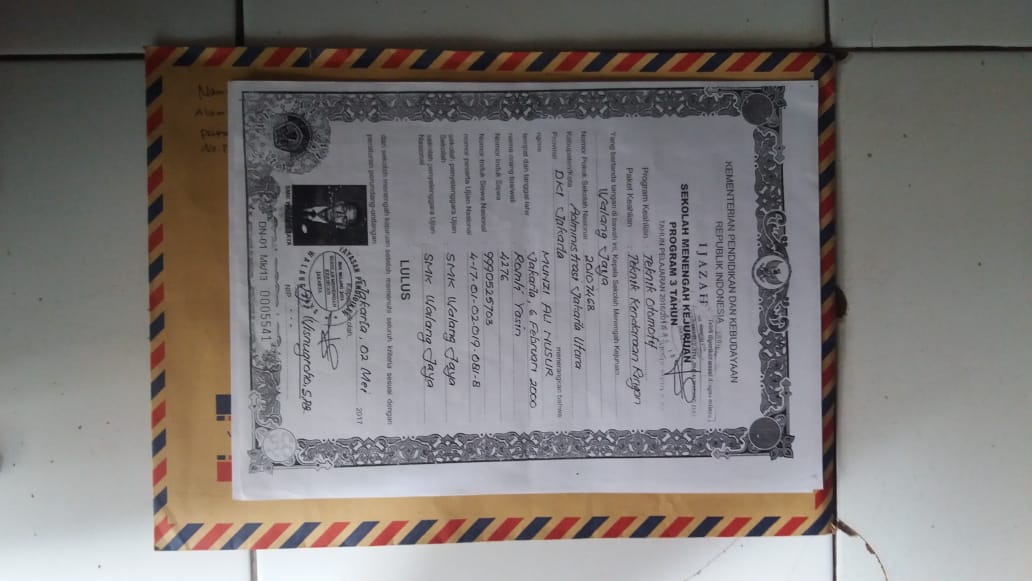 KEMENTERIAN PENDIDIKAN DAN KEBUDAYAAN
REPUBLIK INDONESIA
IJAZAH
Telah diperiksa sesuai dengan aslinya
SEKOLAH MENENGAH KEJURUAN
PROGRAM 3 TAHUN
TAHUN PELAJARAN 2016/2017
Program Keahlian : Teknik Otomotif
Paket Keahlian : Teknik Kendaraan Ringan
Yang bertanda tangan di bawah ini, Kepala Sekolah Menengah Kejuruan
Walang Jaya
Nomor Pokok Sekolah Nasional 20107468
Kabupaten/Kota Administrasi Jakarta Utara
Provinsi DKI Jakarta menerangkan bahwa
nama MUHZI ALI NUSUR
tempat dan tanggal lahir Jakarta, 6 Februari 2000
nama orang tua/wali Romli Yasin
Nomor Induk Siswa 4276
Nomor Induk Siswa Nasional 9990525703
nomor peserta Ujian Nasional 4-17-01-02-019-081-8
sekolah penyelenggara Ujian Sekolah SMK Walang Jaya
sekolah penyelenggara Ujian Nasional SMK Walang Jaya
LULUS
dari sekolah menengah kejuruan setelah memenuhi seluruh kriteria sesuai dengan
peraturan perundang-undangan.
Jakarta, 02 Mei 2017
Kepala Sekolah,
YAYASAN PENDIDIKAN
SMK WALANG JAYA
SEKOLAH MENENGAH
KEJURUAN
JAKARTA
Wisnugroho, S.Pd
NIP
SMK WALANG JAYA
DN-01 Mk/13 0005541